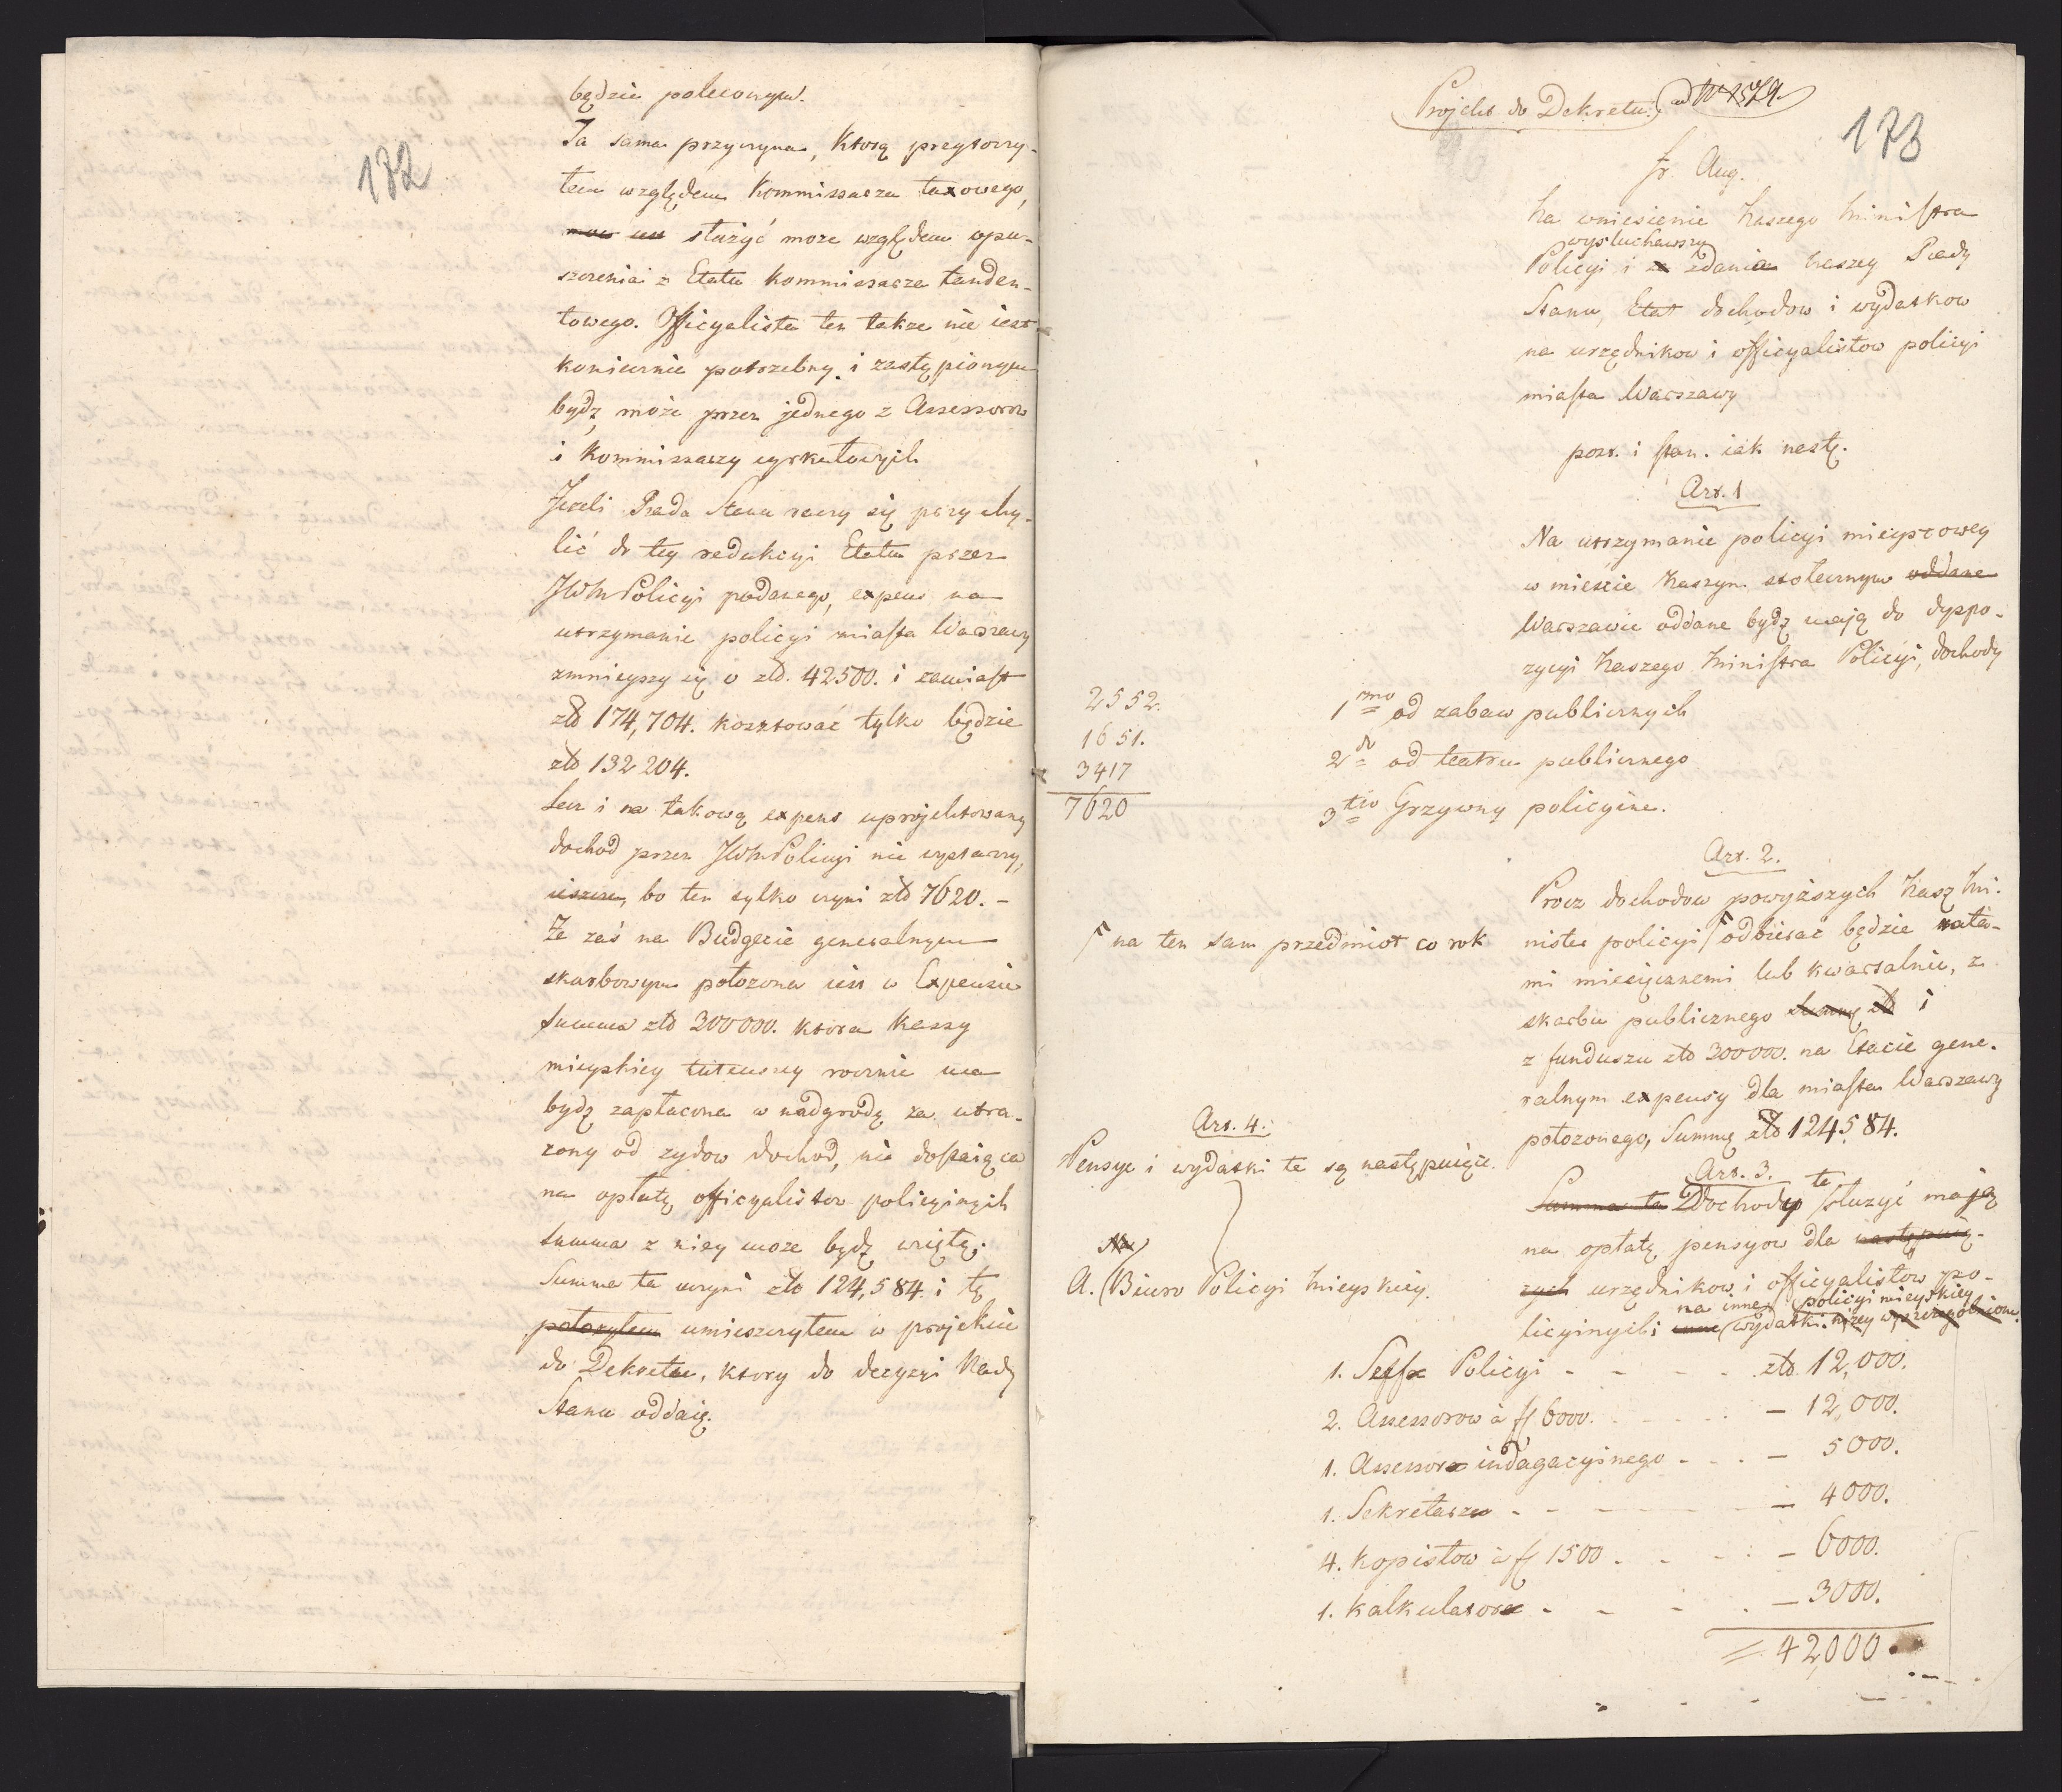 172
będzie poleconym.
Ta sama przyczyna, którą przytoczy-
łem względem Kommissarza taxowego,
służyć może względem opu-
szczenia z Etatu Kommissarza tanden-
towego. Officyalista ten także nie iest
koniecznie potrzebny, i zastępionym
bydź może przez jednego z Assessorow
i Kommissarzy cyrkułowych
Jeżeli Rada Stanu raczy się przychy-
lić do tey redukcyi Etatu przez
JWM Policyi podanego, expens na
utrzymanie policyi miasta Warszawy
zmnieyszy się o złł. 42500. i zamiast
złł 174,704. kosztować tylko będzie
złł 132 204.
Lecz i na takową expens uprojektowany
dochod przez JWM Policyi nie wystarczy,
ieszcze, bo ten tylko czyni złł 7620. –
Że zaś na Budgecie generalnym
skarbowym położona iest w Expensie
summa złł 200000. ktora kassy
mieyskiey tuteyszey rocznie ma
bydź zapłacona w nadgrodę za utra-
cony od żydow dochod, nie dostaiąca
na opłatę officyalistow policyinych
summa z niey może bydź wziętą.
Summa ta czyni złł 124,584. i tę
położyłem umieszczyłem w projekcie
do Dekretu, ktory do decyzyi Rady
Stanu oddaię.
Projekt do Dekretu. ad № 1579.
173
Fr. Aug.
Na wniesienie Naszego Ministra
wysłuchawszy
Policyi i za zdania Naszey Rady
Stanu, Etat dochodow i wydatkow
na urzędnikow i officyalistow policyi
miasta Warszawy
post. i stan. iak nastę.
Art. 1
Na utrzymanie policyi mieyscowey
w mieście Naszym stołecznym oddane
Warszawie oddane bydź maią do dyspo-
zycyi Naszego Ministra Policyi, dochody
2552.
1651.
3417
7620
1mo od zabaw publicznych
2do od teatru publicznego
3tio Grzywny policyine.
Art. 2.
Procz dochodow powyższych Nasz Mi-
nister policyi odbierać będzie rata-
na ten sam przedmiot co rok
mi miesięcznemi lub kwartalnie, z
skarbu publicznego summę złł i
z funduszu złł 200000. na Etacie gene-
ralnym expensy dla miasta Warszawy
położonego, Summę złł 124,584.
Art. 3.
Summa ta Dochody te służyć mają
na opłatę pensyow dla następuią-
cych urzędnikow i officyalistow po-
na inne policyi mieyskiey
licyinych i inne wydatki niżey wyszczególnione.
Art. 4.
Pensye i wydatki te są następuiące.
Na
A. Biuro Policyi Mieyskiey.
1. Szeffa Policyi - - - - złł. 12,000.
2. Assessorow à fl 6000. - - - – 12,000.
1. Assessora indagacyinego - - - – 5000.
1. Sekretarza - - - - – 4000.
4. Kopistow à fl 1500 - - - – 6000.
1. Kalkulatora - - - - – 3000.
= 42,000.